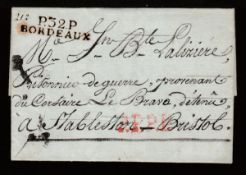 P32P
BORDEAUX
Mr. Jn. Bte. Laluzière
Prisonnier de guerre, provenant
du Corsaire Le Brave, détenu
a Stableston - Bristol.